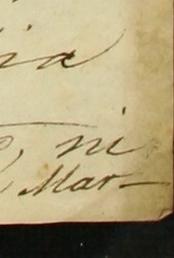 ia
ni
Mar-